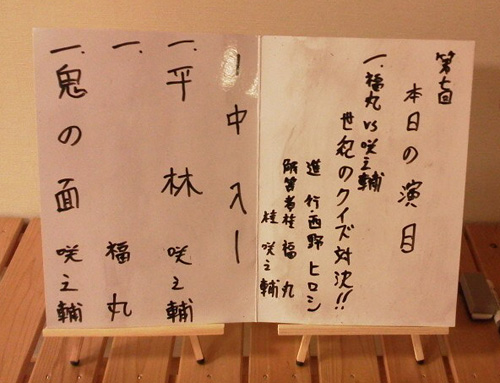 第七回
本日の演目
一、福丸 vs 咲之輔
世紀のクイズ対決!!
進行・西野ヒロシ
解答者 桂 福丸
桂 咲之輔
ー中入ー
一、平林 咲之輔
一、 福丸
一、鬼の面 咲之輔